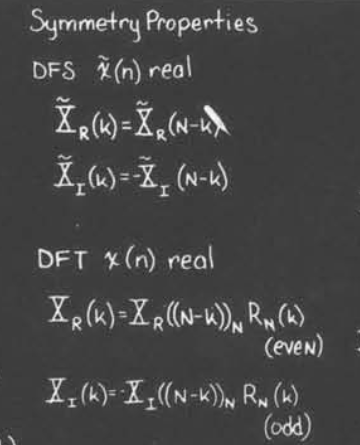 Symmetry Properties
DFS x̃(n) real
X̃_R(k)=X̃_R(N-k)
X̃_I(k)=-X̃_I(N-k)
DFT x(n) real
X_R(k)=X_R((N-k))_N R_N(k)
(even)
X_I(k)=-X_I((N-k))_N R_N(k)
(odd)